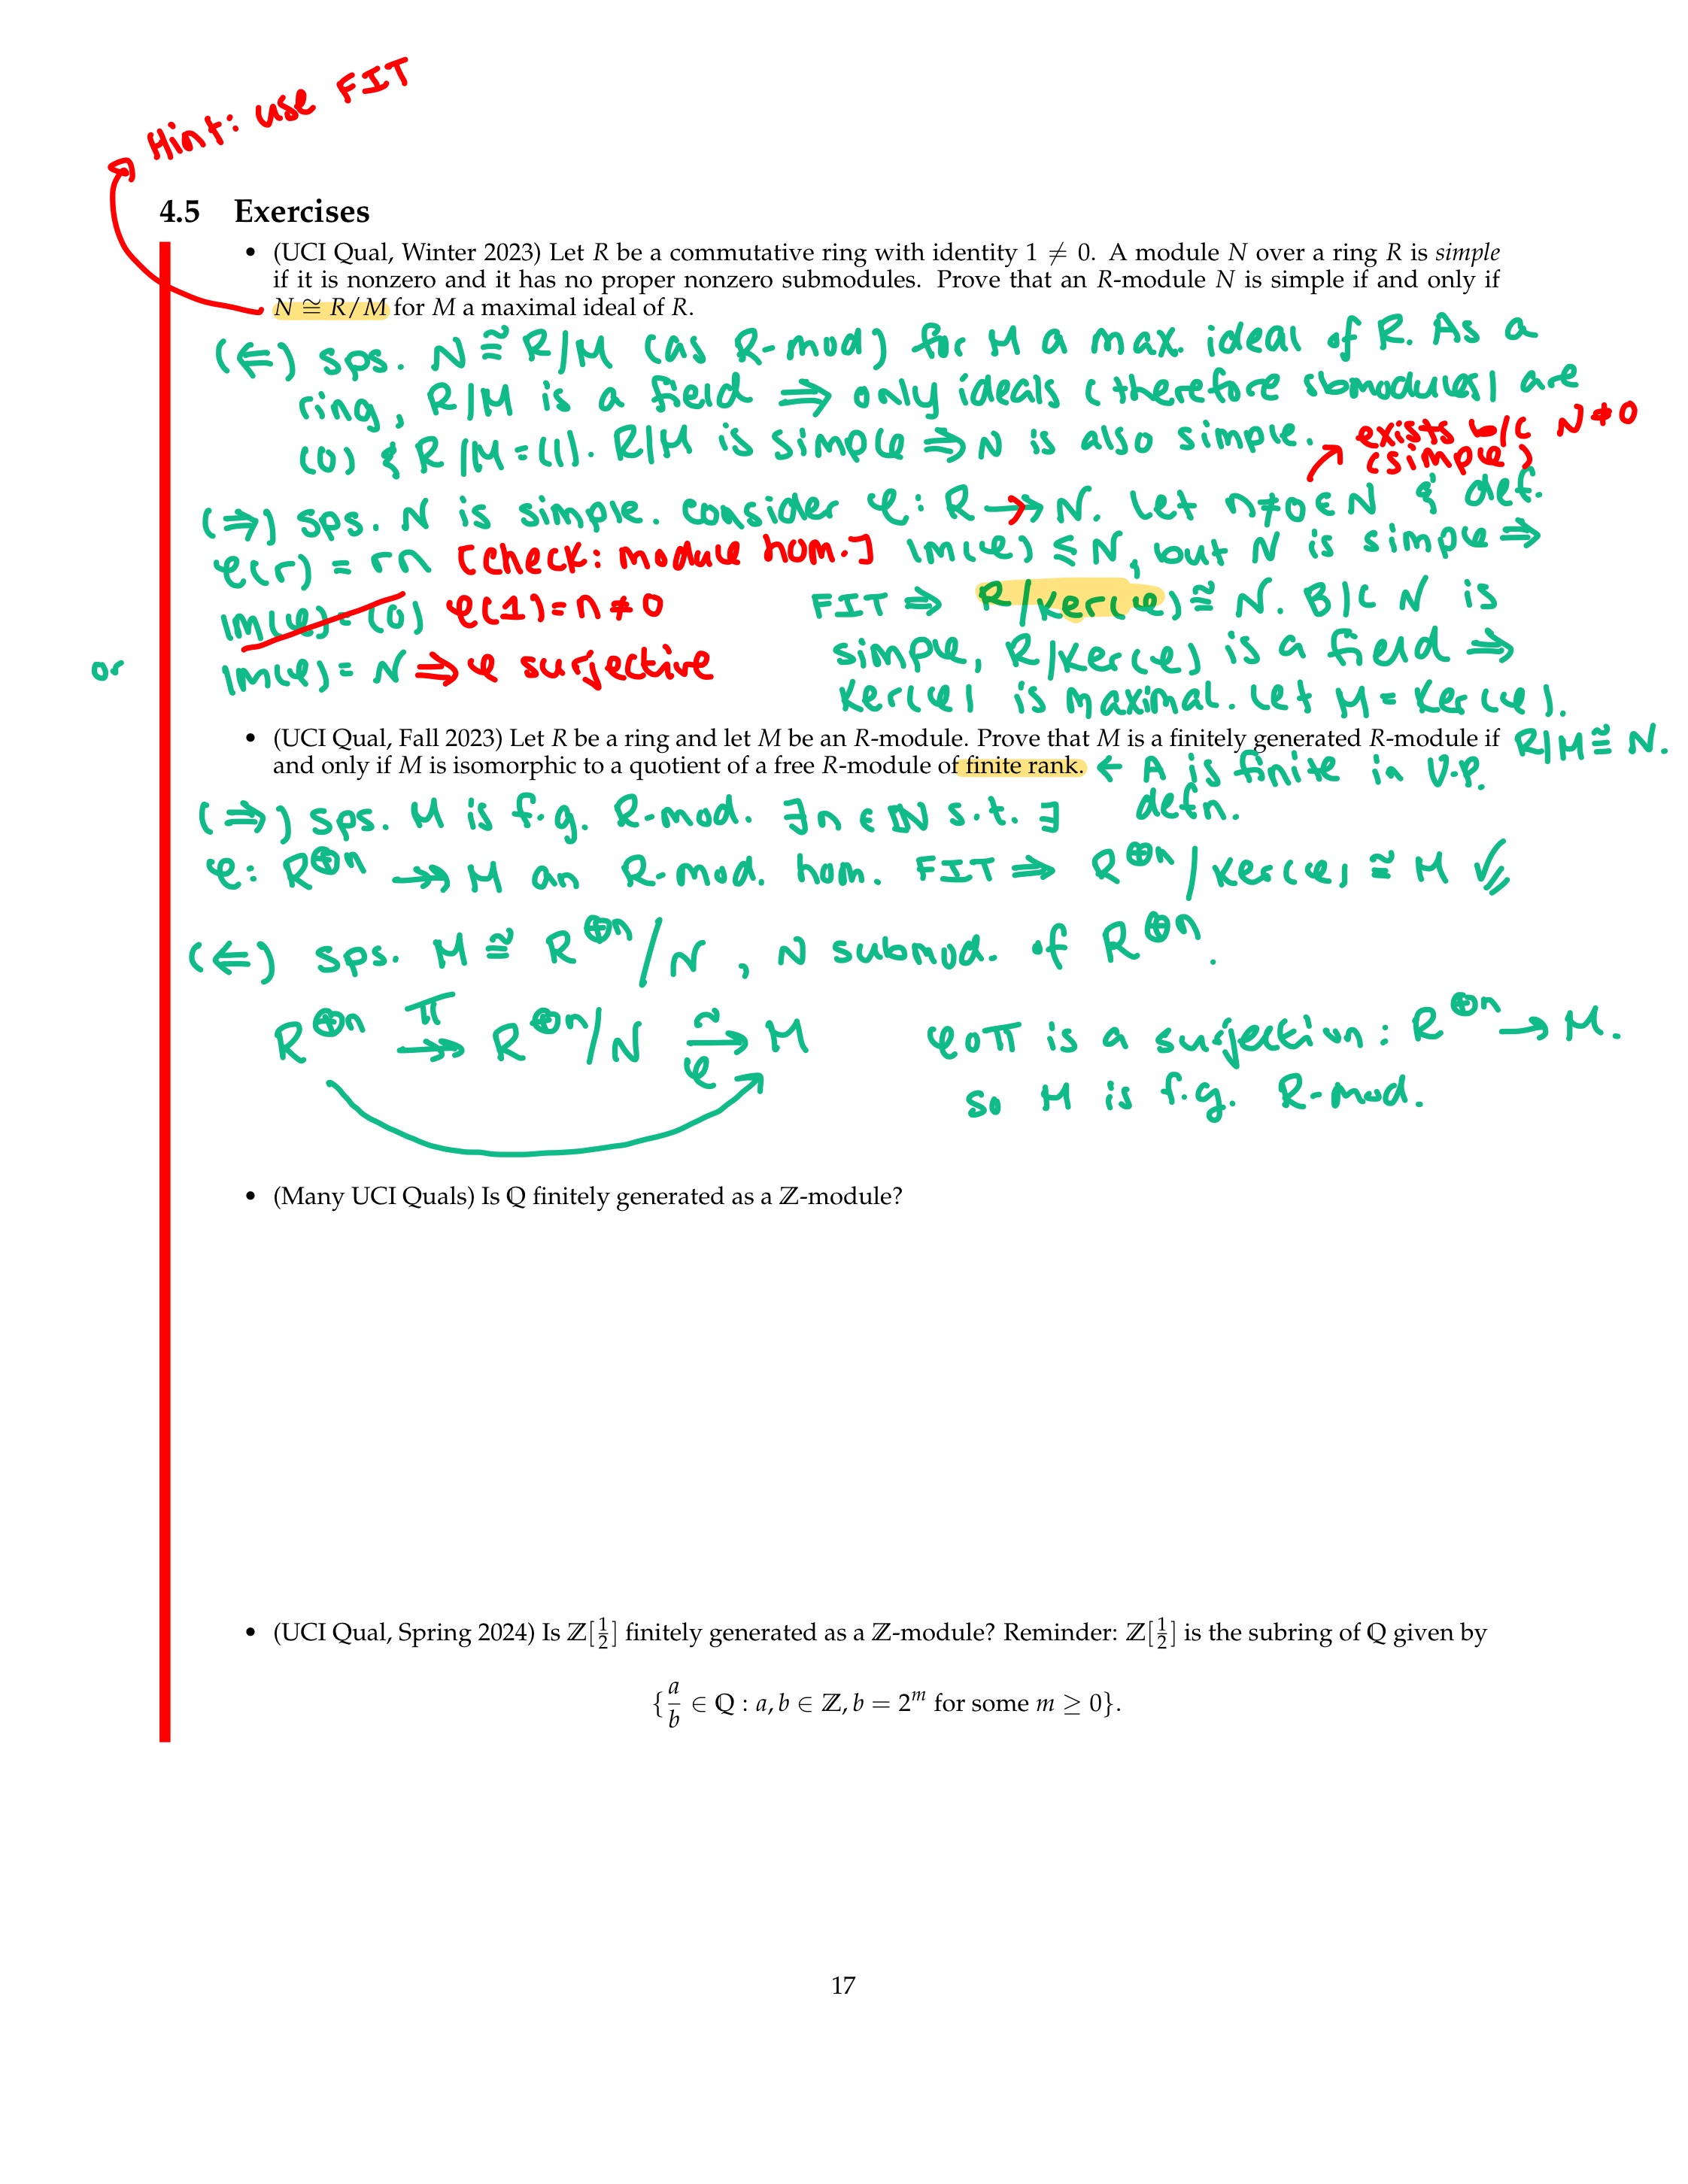 Hint: use FIT
4.5 Exercises
• (UCI Qual, Winter 2023) Let R be a commutative ring with identity 1 ≠ 0. A module N over a ring R is simple
if it is nonzero and it has no proper nonzero submodules. Prove that an R-module N is simple if and only if
N ≅ R/M for M a maximal ideal of R.
(⇐) sps. N ≅ R/M (as R-mod) for M a max. ideal of R. As a
ring, R/M is a field ⇒ only ideals (therefore sbmodules) are
(0) & R/M = (1). R/M is simple ⇒ N is also simple.
exists b/c N ≠ 0
(simple)
(⇒) sps. N is simple. consider φ: R ↠ N. Let n ≠ 0 ∈ N & def.
φ(r) = rn [check: module hom.] Im(φ) ≤ N, but N is simple ⇒
Im(φ) = (0) φ(1) = n ≠ 0
or Im(φ) = N ⇒ φ surjective
FIT ⇒ R/Ker(φ) ≅ N. B/C N is
simple, R/Ker(φ) is a field ⇒
Ker(φ) is maximal. Let M = Ker(φ).
R/M ≅ N.
• (UCI Qual, Fall 2023) Let R be a ring and let M be an R-module. Prove that M is a finitely generated R-module if
and only if M is isomorphic to a quotient of a free R-module of finite rank.
← A is finite in U.P.
defn.
(⇒) sps. M is f.g. R-mod. ∃ n ∈ ℕ s.t. ∃
φ: R^⊕n ↠ M an R-mod. hom. FIT ⇒ R^⊕n / Ker(φ) ≅ M ✓
(⇐) sps. M ≅ R^⊕n / N, N submod. of R^⊕n.
R^⊕n π↠ R^⊕n/N ~→φ M
φ∘π is a surjection: R^⊕n → M.
so M is f.g. R-mod.
• (Many UCI Quals) Is ℚ finitely generated as a ℤ-module?
• (UCI Qual, Spring 2024) Is ℤ[1/2] finitely generated as a ℤ-module? Reminder: ℤ[1/2] is the subring of ℚ given by
{a/b ∈ ℚ : a, b ∈ ℤ, b = 2^m for some m ≥ 0}.
17